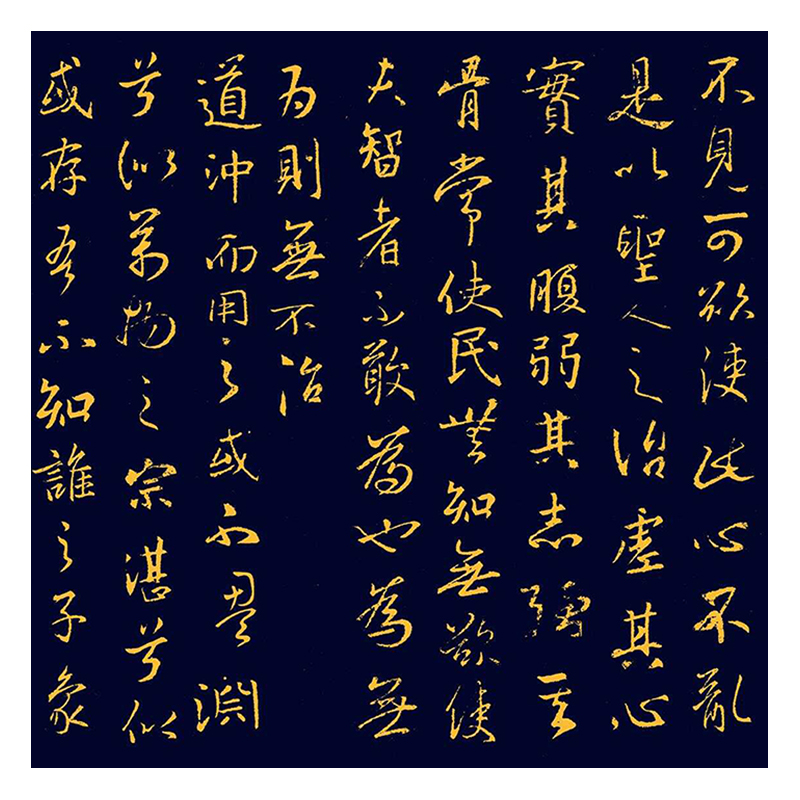 不見可欲使此心不亂
是以聖人之治虛其心
實其腹弱其志強其
骨常使民無知無欲使
夫智者不敢為也為無
为則無不治
道沖而用之或不盈淵
兮似萬物之宗湛兮似
或存吾不知誰之子象